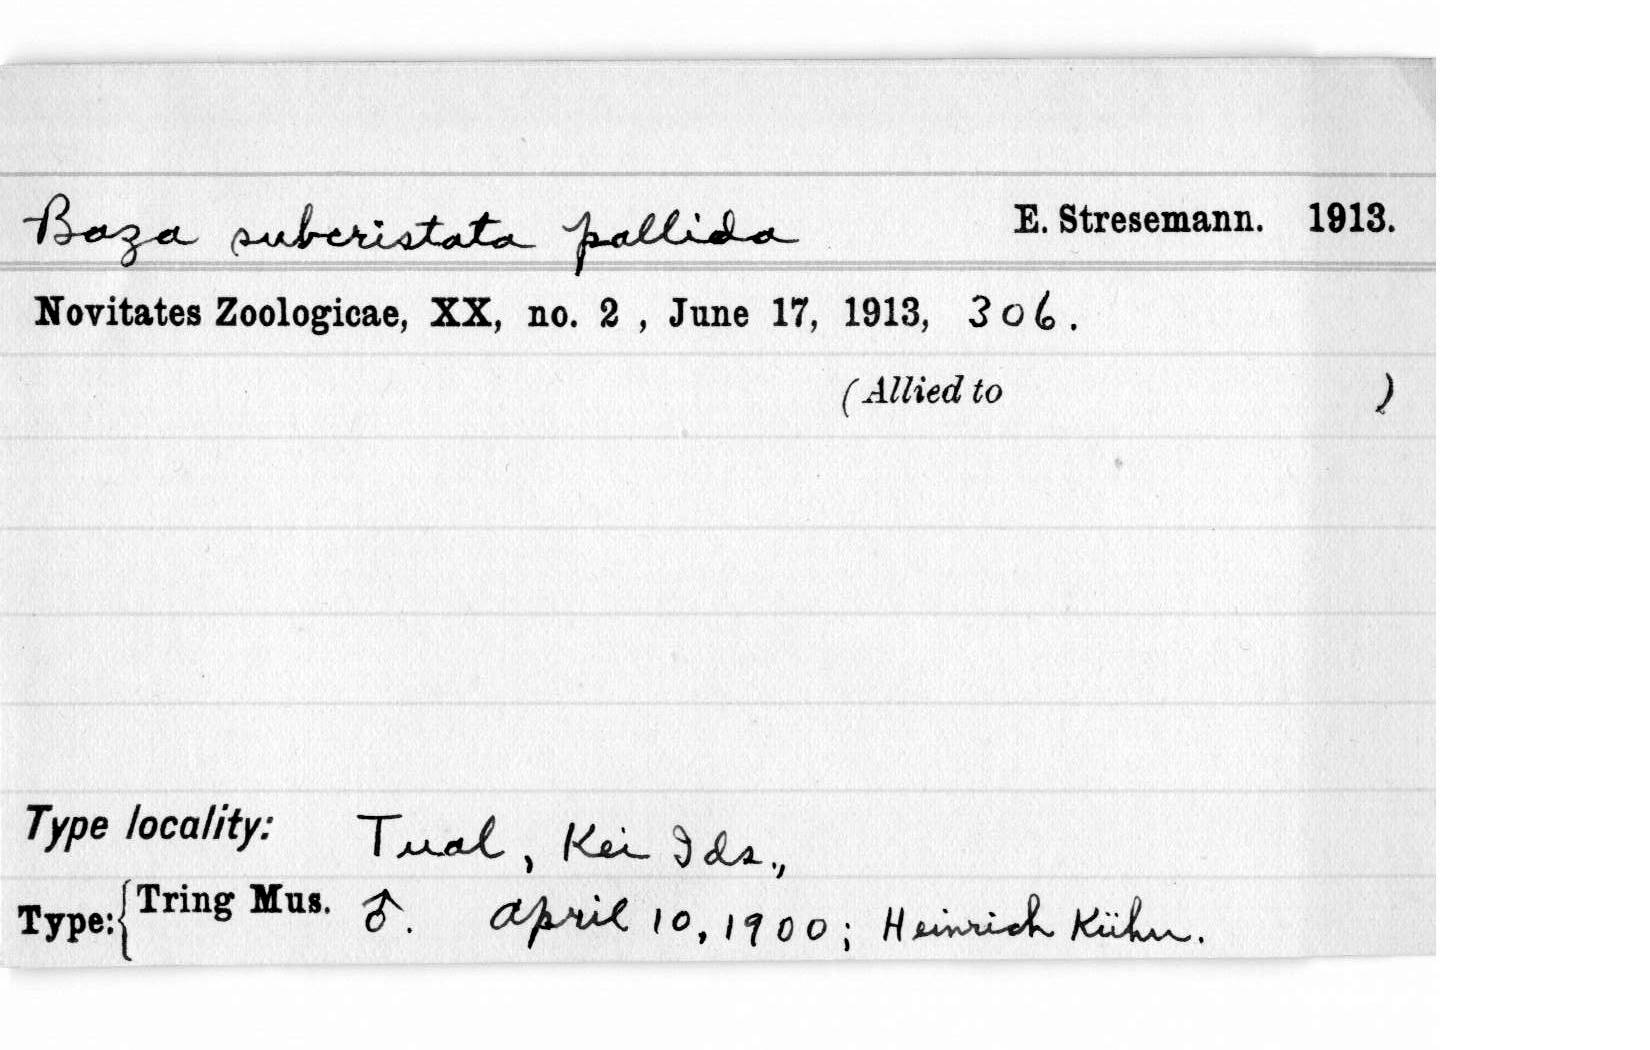 Baza subcristata pallida E. Stresemann. 1913.
Novitates Zoologicae, XX, no. 2 , June 17, 1913, 306.
(Allied to )
Type locality: Tual, Kei Ids.,
Type: { Tring Mus. ♂. April 10, 1900; Heinrich Kühn.